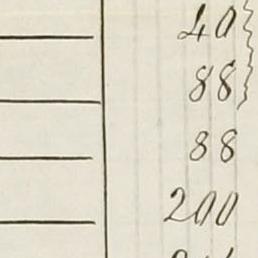 40
88
88
200